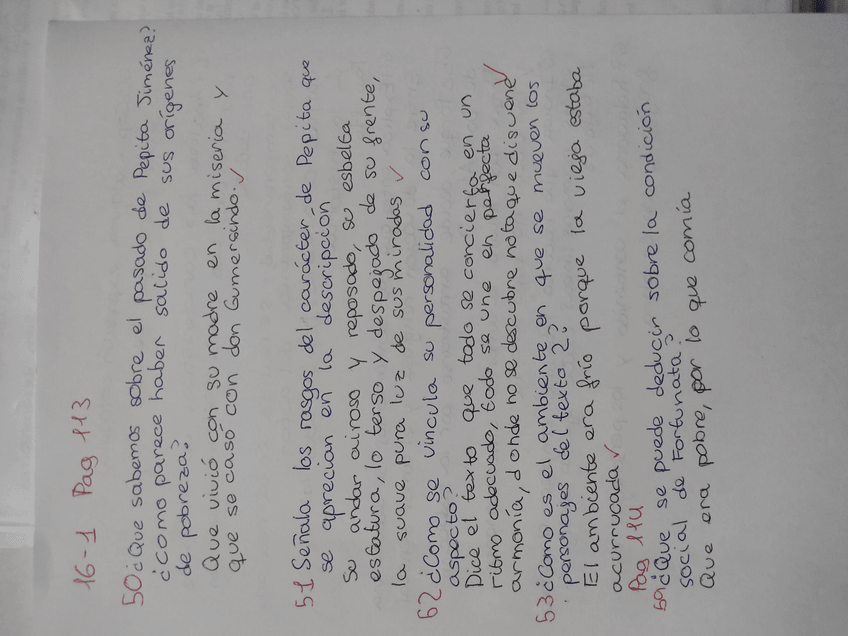 16-1 Pag 113
50 ¿Que sabemos sobre el pasado de Pepita Jiménez?
¿como parece haber salido de sus orígenes
de pobreza?
Que vivió con su madre en la miseria y
que se casó con don Gumersindo.
51 Señala los rasgos del carácter de Pepita que
se aprecian en la descripción
Su andar airoso y reposado, su esbelta
estatura, lo terso y despejado de su frente,
la suave pura luz de sus miradas
62 ¿Como se vincula su personalidad con su
aspecto?
Dice el texto que todo se concierta en un
ritmo adecuado, todo se une en perfecta
armonía, donde no se descubre nota que disuene
53 ¿Como es el ambiente en que se mueven los
personajes del texto 2?
El ambiente era frío porque la vieja estaba
acurrucada
Pag 114
59 ¿Que se puede deducir sobre la condición
social de Fortunata?
Que era pobre, por lo que comía